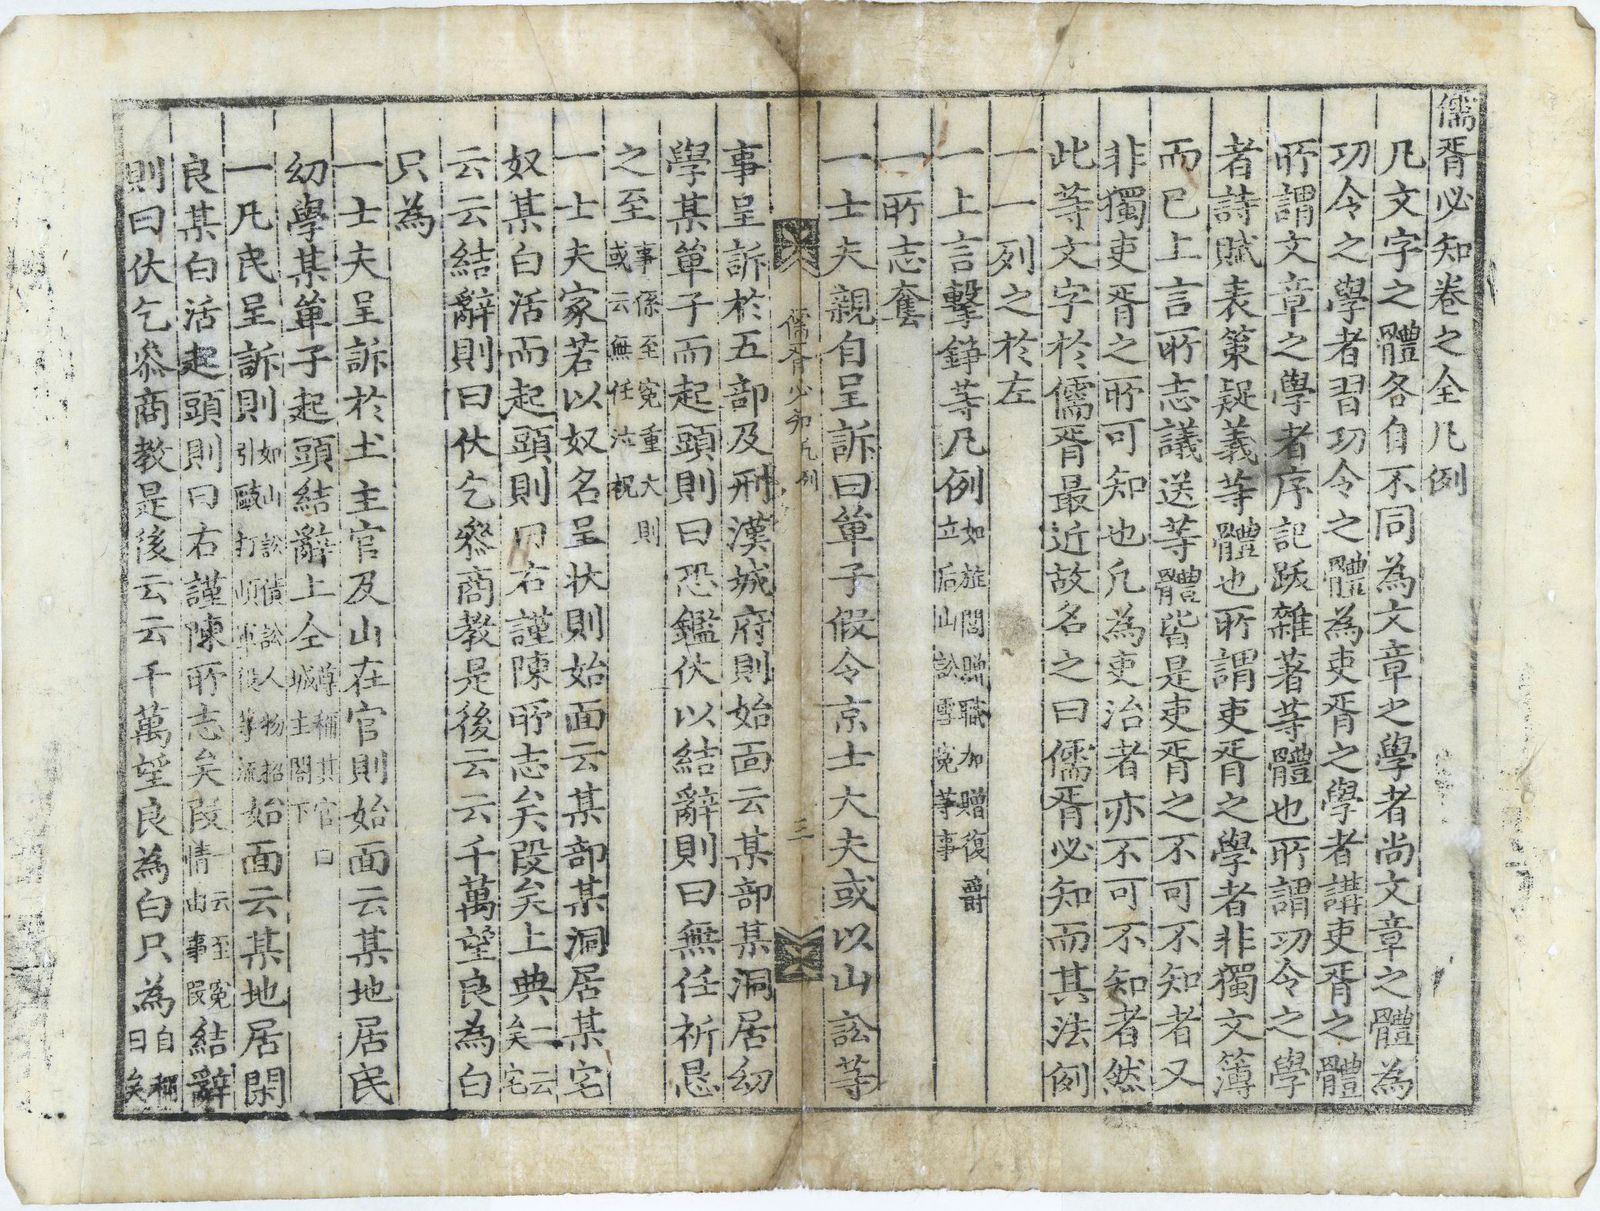 儒胥必知卷之全凡例
凡文字之體各自不同為文章之學者尚文章之體為
功令之學者習功令之體為吏胥之學者講吏胥之體
所謂文章之學者序記跋雜著等體也所謂功令之學
者詩賦表策疑義等體也所謂吏胥之學者非獨文簿
而已上言所志議送等體皆是吏胥之不可不知者又
非獨吏胥之所可知也凡為吏治者亦不可不知者然
此等文字於儒胥最近故名之曰儒胥必知而其法例
一一列之於左
一上言擊錚等凡例如旌閭贈職加贈復爵立后山訟雪寃等事
一所志奪
一士夫親自呈訴曰單子假令京士大夫或以山訟等
儒胥必知凡例
三
事呈訴於五部及刑漢城府則始面云某部某洞居幼
學某單子而起頭則曰恐鑑伏以結辭則曰無任祈恳
之至事係至寃重大則或云無任泣祝
一士夫家若以奴名呈狀則始面云某部某洞居某宅
奴某白活而起頭則曰右謹陳所志矣段矣上典一云矣宅
云云結辭則曰伏乞叅商教是後云云千萬望良為白
只為
一士夫呈訴於土主官及山在官則始面云某地居民
幼學某單子起頭結辭上仝尊稱其官曰城主閤下
一凡民呈訴則如山訟債訟人物招引毆打頉軍役等流始面云某地居閑
良某白活起頭則曰右謹陳所志矣段一云至寃情由事段結辭
則曰伏乞叅商教是後云云千萬望良為白只為自稱曰矣